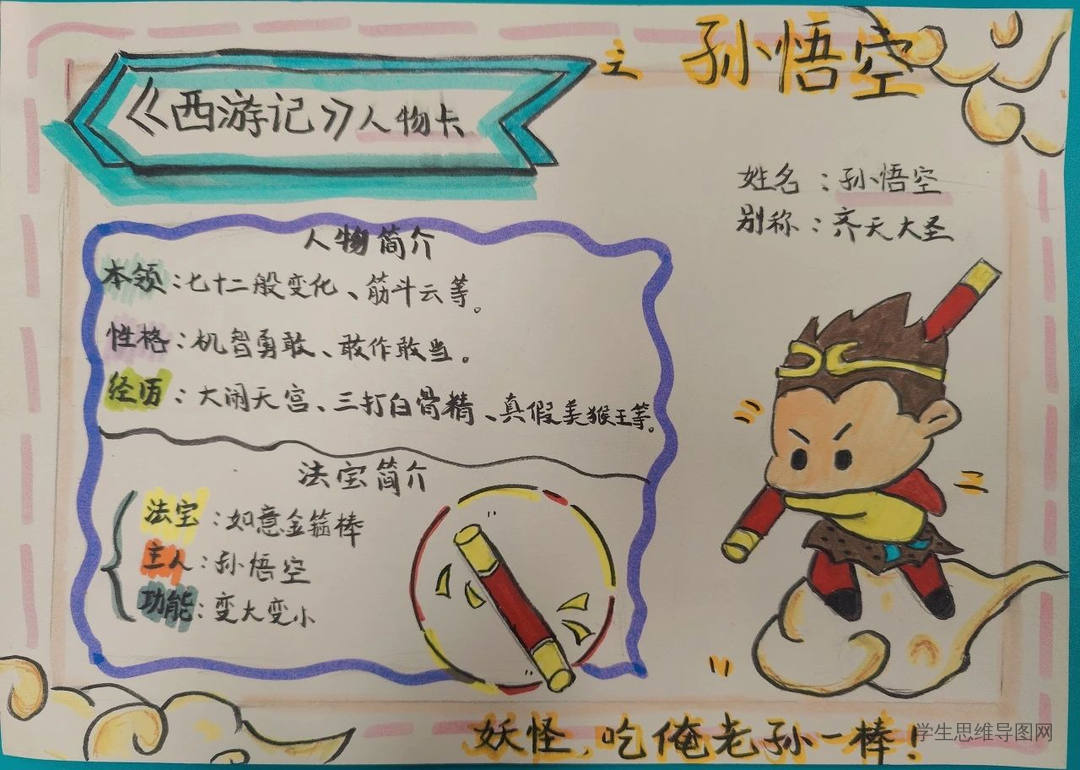 《西游记》人物卡
之 孙悟空
姓名：孙悟空
别称：齐天大圣
人物简介
本领：七十二般变化、筋斗云等。
性格：机智勇敢、敢作敢当。
经历：大闹天宫、三打白骨精、真假美猴王等。
法宝简介
法宝：如意金箍棒
主人：孙悟空
功能：变大变小
妖怪，吃俺老孙一棒！
学生思维导图网